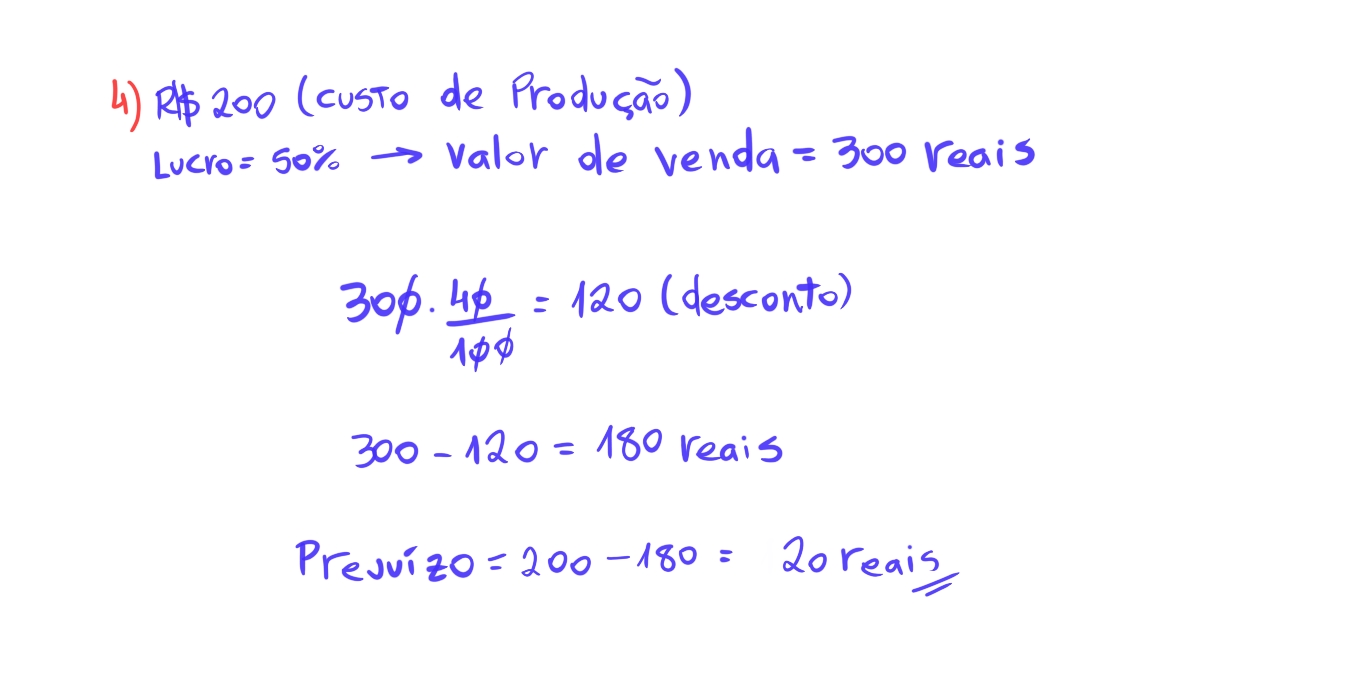 4) R$ 200 (custo de Produção)
Lucro = 50% → valor de venda = 300 reais
300 . 40/100 = 120 (desconto)
300 - 120 = 180 reais
Prejuízo = 200 - 180 = 20 reais